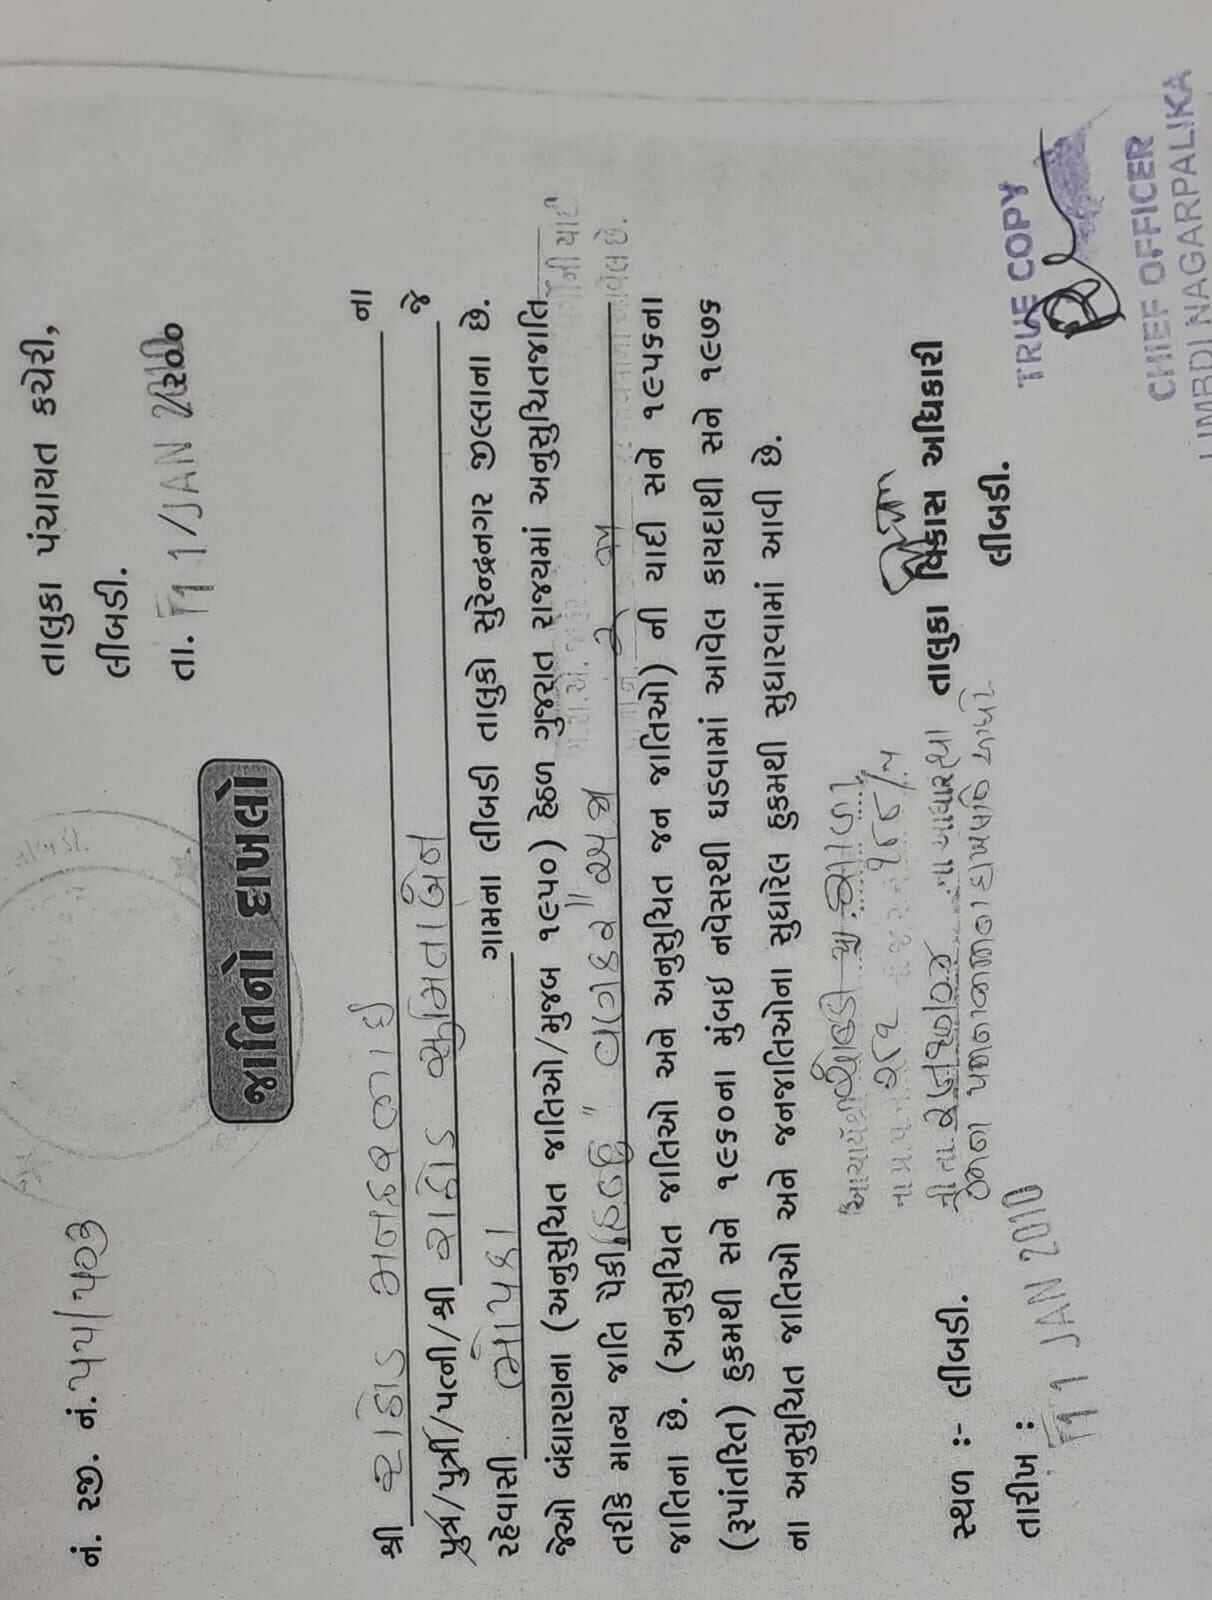 તાલુકા પંચાયત કચેરી,
લીંબડી.
નં. રજી. નં. ૫૫/
તા. 11/JAN 2010
જાતિનો દાખલો
શ્રી રાઠોડ મનહરભાઇ ના
પુત્ર/પુત્રી/પત્ની/શ્રી રાઠોડ સુમિતાબેન જે
રહેવાસી ભોયકા ગામના લીંબડી તાલુકો સુરેન્દ્રનગર જીલ્લાના છે.
જેઓ બંધારણના (અનુસુચિત જાતિઓ/મુજબ ૧૯૫૦) હેઠળ ગુજરાત રાજ્યમાં અનુસુચિતજાતિ
તરીકે માન્ય જાતિ પૈકી હિન્દુ " વણકર "
જાતિના છે. (અનુસુચિત જાતિઓ અને અનુસુચિત જન જાતિઓ) ની યાદી સને ૧૯૫૬ના
(રૂપાંતરિત) હુકમથી સને ૧૯૬૦ના મુંબઇ નવેસરથી ઘડવામાં આવેલ કાયદાથી સને ૧૯૭૬
ના અનુસુચિત જાતિઓ અને જનજાતિઓના સુધારેલ હુકમથી સુધારવામાં આવી છે.
સ્થળ :- લીંબડી.
તારીખ :
11 JAN 2010
તાલુકા વિકાસ અધિકારી
લીંબડી.
TRUE COPY
CHIEF OFFICER
LIMBDI NAGARPALIKA